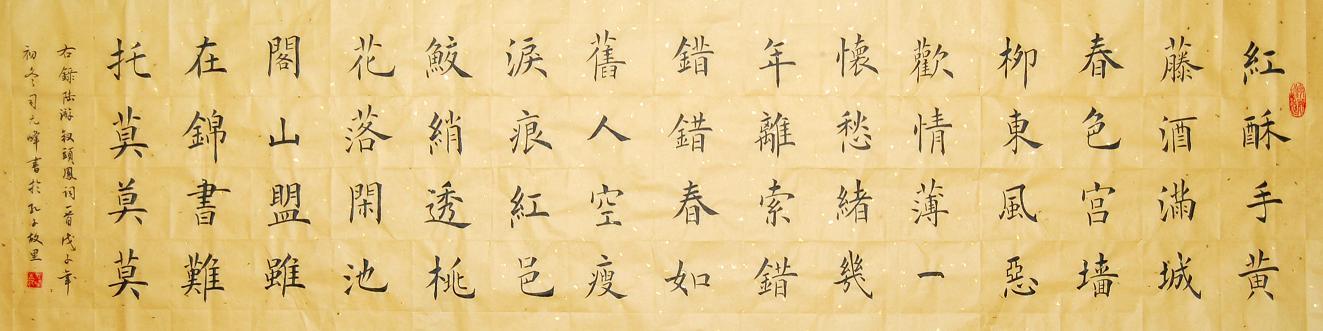 紅酥手黃
藤酒滿城
春色宮墻
柳東風惡
歡情薄一
懷愁緒幾
年離索錯
錯錯春如
舊人空瘦
淚痕紅邑
鮫綃透桃
花落閑池
閣山盟雖
在錦書難
托莫莫莫
右錄陸游釵頭鳳詞一首戊子年
初冬司元峰書於孔子故里